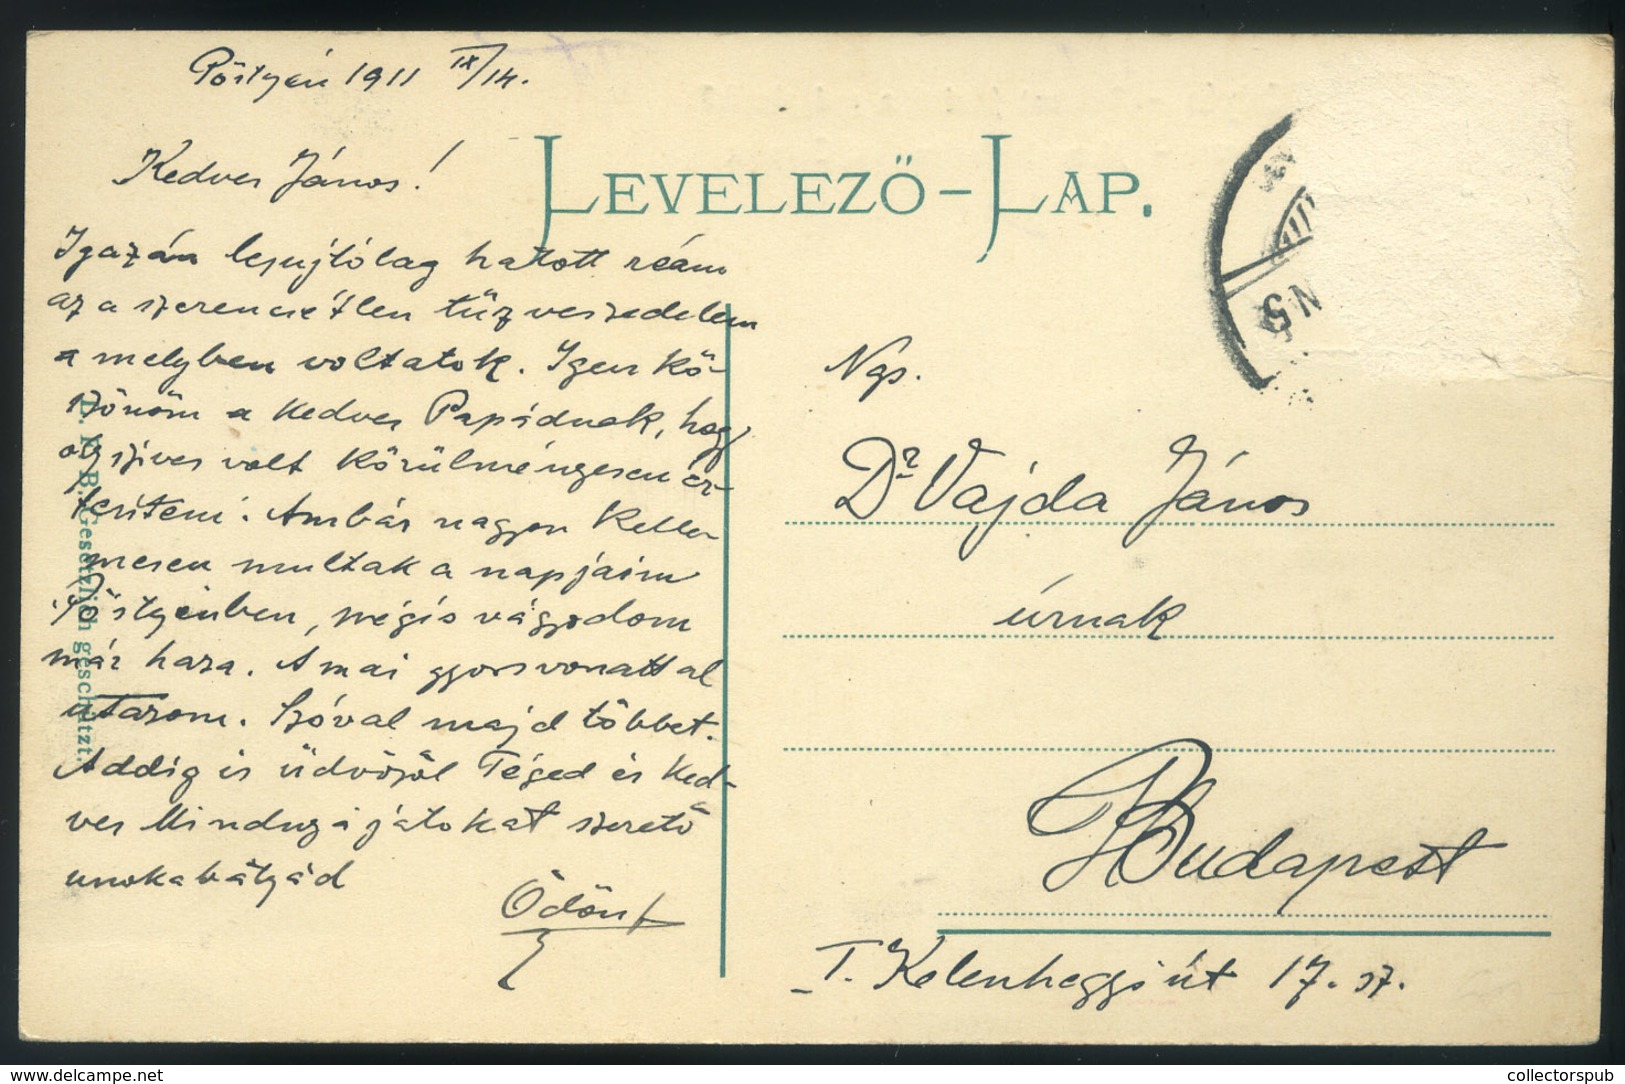 Pöstyén 1911 IX/14.
Kedves János!
LEVELEZŐ-LAP.
Igazán lesujtólag hatott reám
az a szerencsétlen tűzveszedelem
a melyben voltatok. Igen kö-
szönöm a kedves Papádnak, hogy
oly szives volt körülményesen ér-
tesíteni. Ambár nagyon kelle-
mesen multak a napjaim
Pöstyénben, mégis vágyodom
már haza. A mai gyorsvonattal
utazom. Szóval majd többet.
Addig is üdvözöl Téged és ked-
ves Mindnyájátokat szerető
unokabátyád
Ödön
Ngs.
Dr Vajda János
úrnak
Budapest
I. Kelenhegyi út 17. sz.
Gesetzlich geschützt.
N 5
delcampe.net
collectorspub